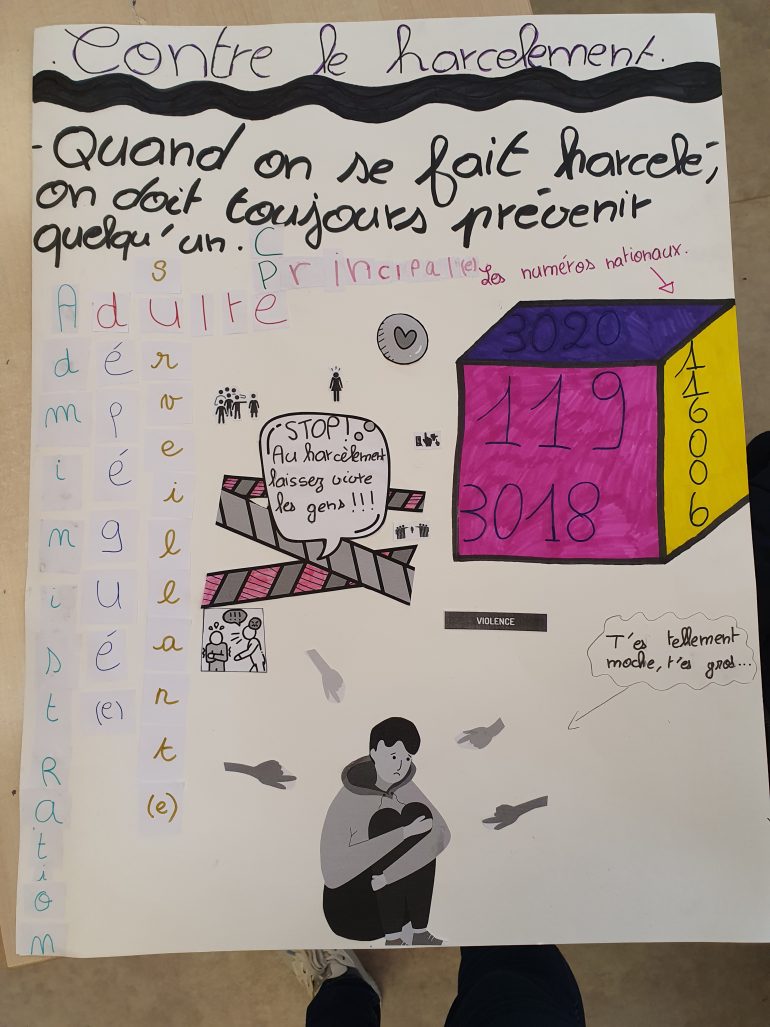 . Contre le harcelement.
- Quand on se fait harcelé,
on doit toujours prévenir
quelqu'un.
Principal(e)
Adulte
AdministRation
délégué(e)
surveillant(e)
CPe
Les numéros nationaux.
3020
119
3018
116006
STOP!
Au harcèlement
laissez vivre
les gens !!!
!!!
VIOLENCE
T'es tellement
moche, t'es gros...